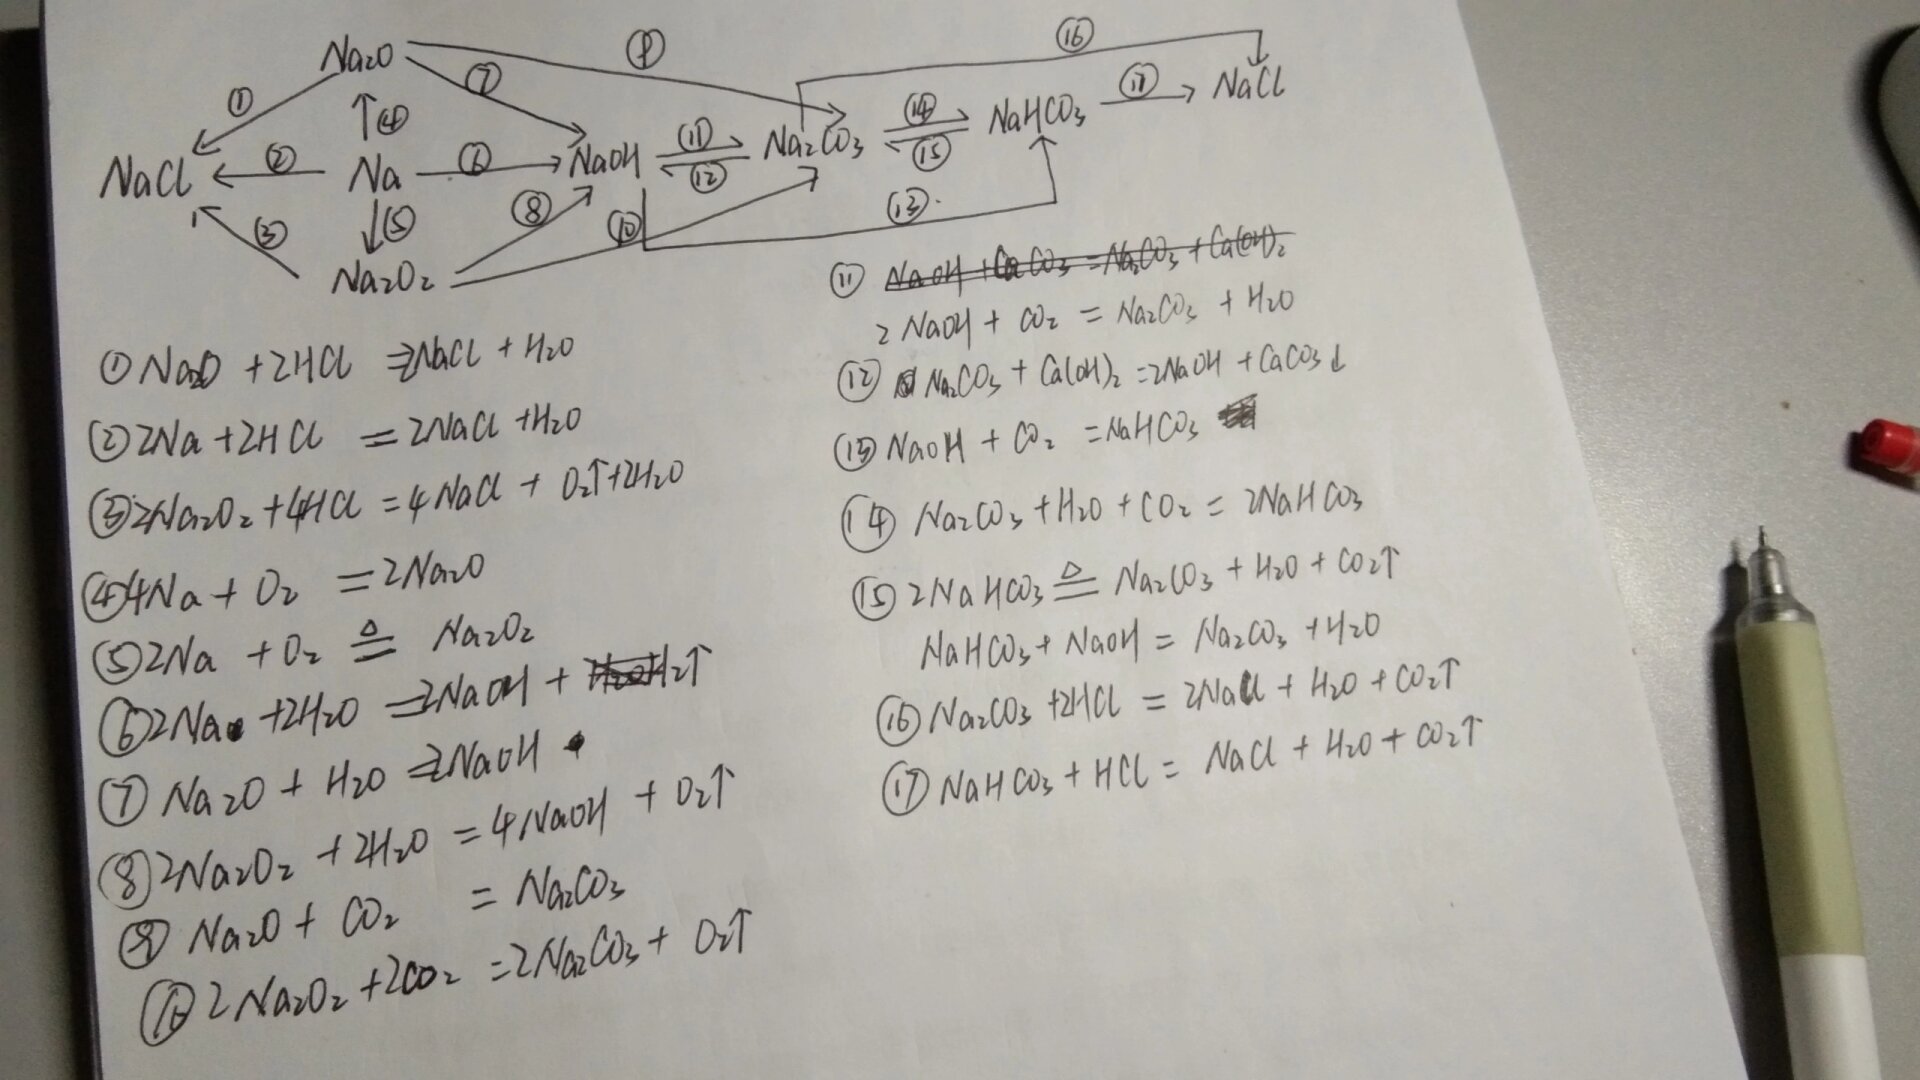 Na₂O ⑨ ⑯
① ④ ⑦ ⑪ ⑭ NaHCO₃ ⑰ NaCl
NaCl ② Na ⑥ NaOH ⑫ Na₂CO₃ ⑮
③ ⑤ ⑧ ⑩ ⑬
Na₂O₂
①Na₂O +2HCl =2NaCl + H₂O
②2Na +2HCl =2NaCl +H₂O
③2Na₂O₂ +4HCl =4NaCl + O₂↑+2H₂O
④4Na + O₂ =2Na₂O
⑤2Na +O₂ ≜ Na₂O₂
⑥2Na +2H₂O =2NaOH + H₂↑
⑦ Na₂O + H₂O =2NaOH
⑧2Na₂O₂ +2H₂O =4NaOH + O₂↑
⑨ Na₂O + CO₂ = Na₂CO₃
⑩2Na₂O₂ +2CO₂ =2Na₂CO₃ + O₂↑
⑪ NaOH +CaCO₃ =Na₂CO₃ +Ca(OH)₂
2NaOH + CO₂ = Na₂CO₃ + H₂O
⑫ Na₂CO₃ + Ca(OH)₂ =2NaOH +CaCO₃↓
⑬ NaOH + CO₂ =NaHCO₃
⑭ Na₂CO₃ +H₂O +CO₂ = 2NaHCO₃
⑮ 2NaHCO₃ ≜ Na₂CO₃ + H₂O + CO₂↑
NaHCO₃ + NaOH = Na₂CO₃ +H₂O
⑯ Na₂CO₃ +2HCl = 2NaCl + H₂O +CO₂↑
⑰ NaHCO₃ + HCl = NaCl + H₂O + CO₂↑